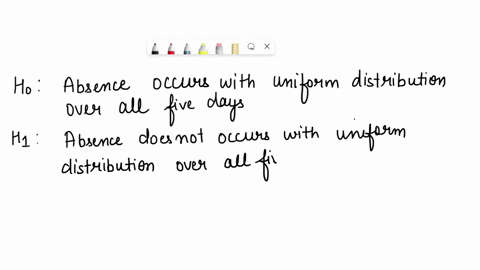 H₀: Absence occurs with uniform distribution
over all five days
H₁: Absence does not occurs with uniform
distribution over all fi